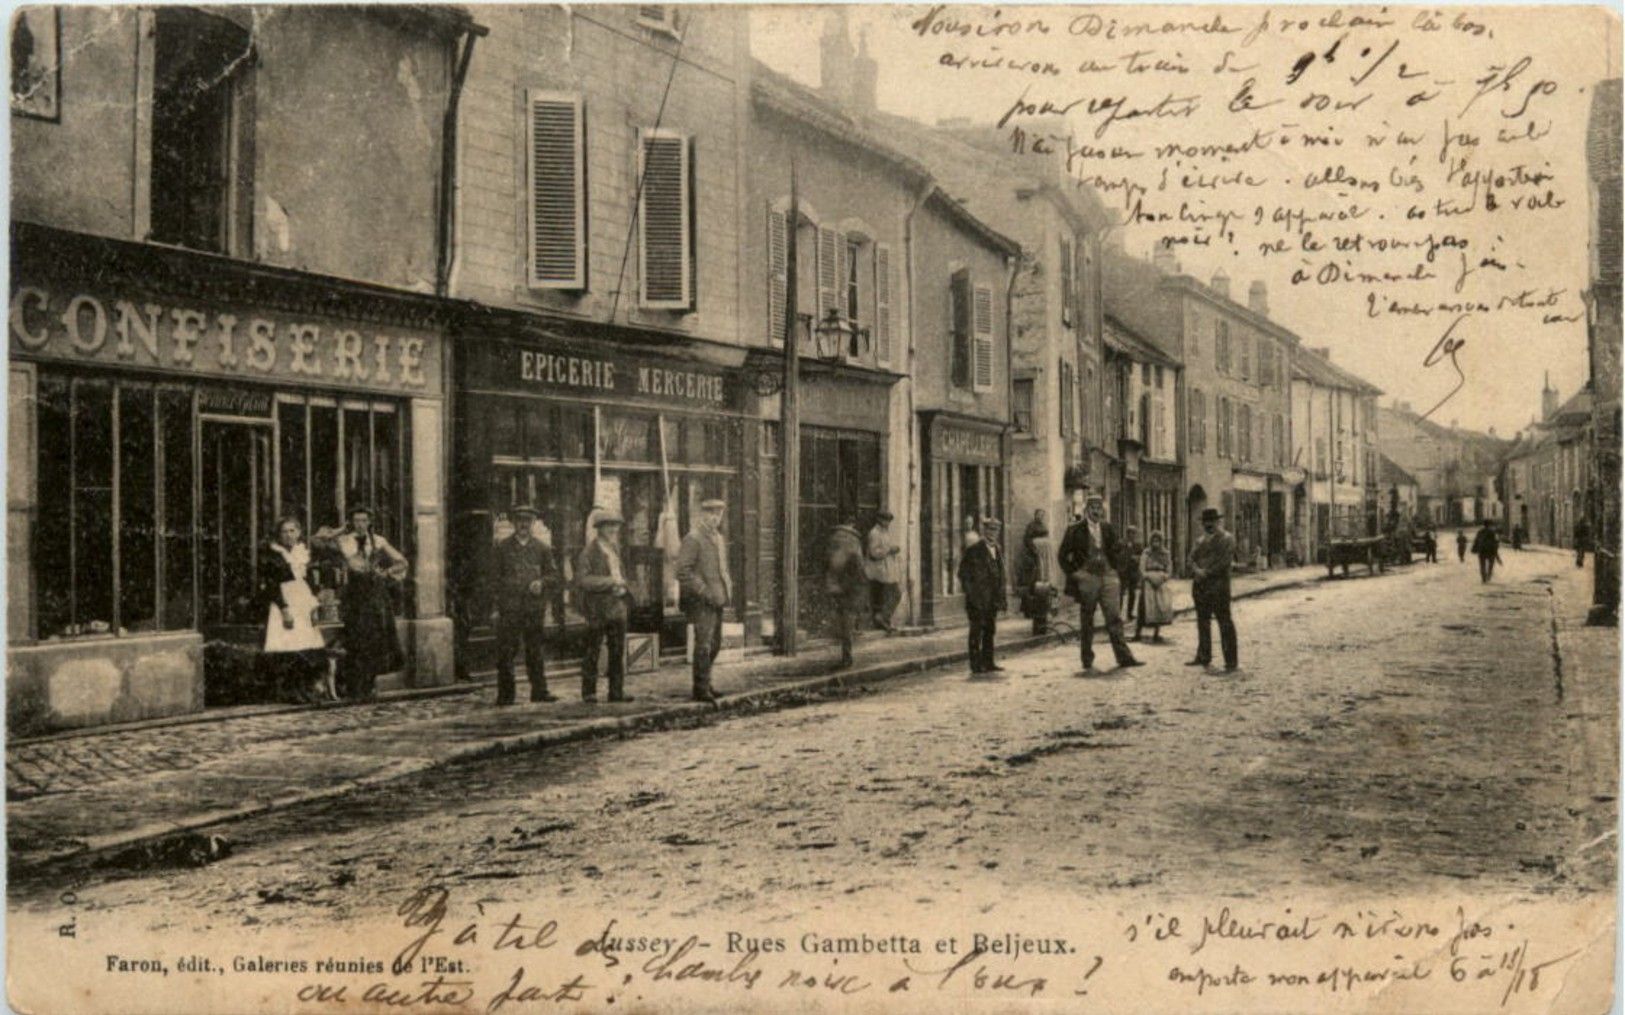 Nous irons Dimanche prochain là bas,
arriverons au train de 9h 1/2
pour repartir le soir à 7h 50.
N'ai pas un moment à moi n'ai pas
temps d'écrire. allons
ton linge & appareil. as tu le voile
noir? ne le retrouve pas
à Dimanche
t'embrassons de tout
CONFISERIE
EPICERIE MERCERIE
CHAPELLERIE
Jussey - Rues Gambetta et Beljeux.
R. O.
Faron, édit., Galeries réunies de l'Est.
Y a t'il chambre noire à l'eux ?
ou autre part ?
s'il pleuvait n'irons pas.
emporte mon appareil 6 à